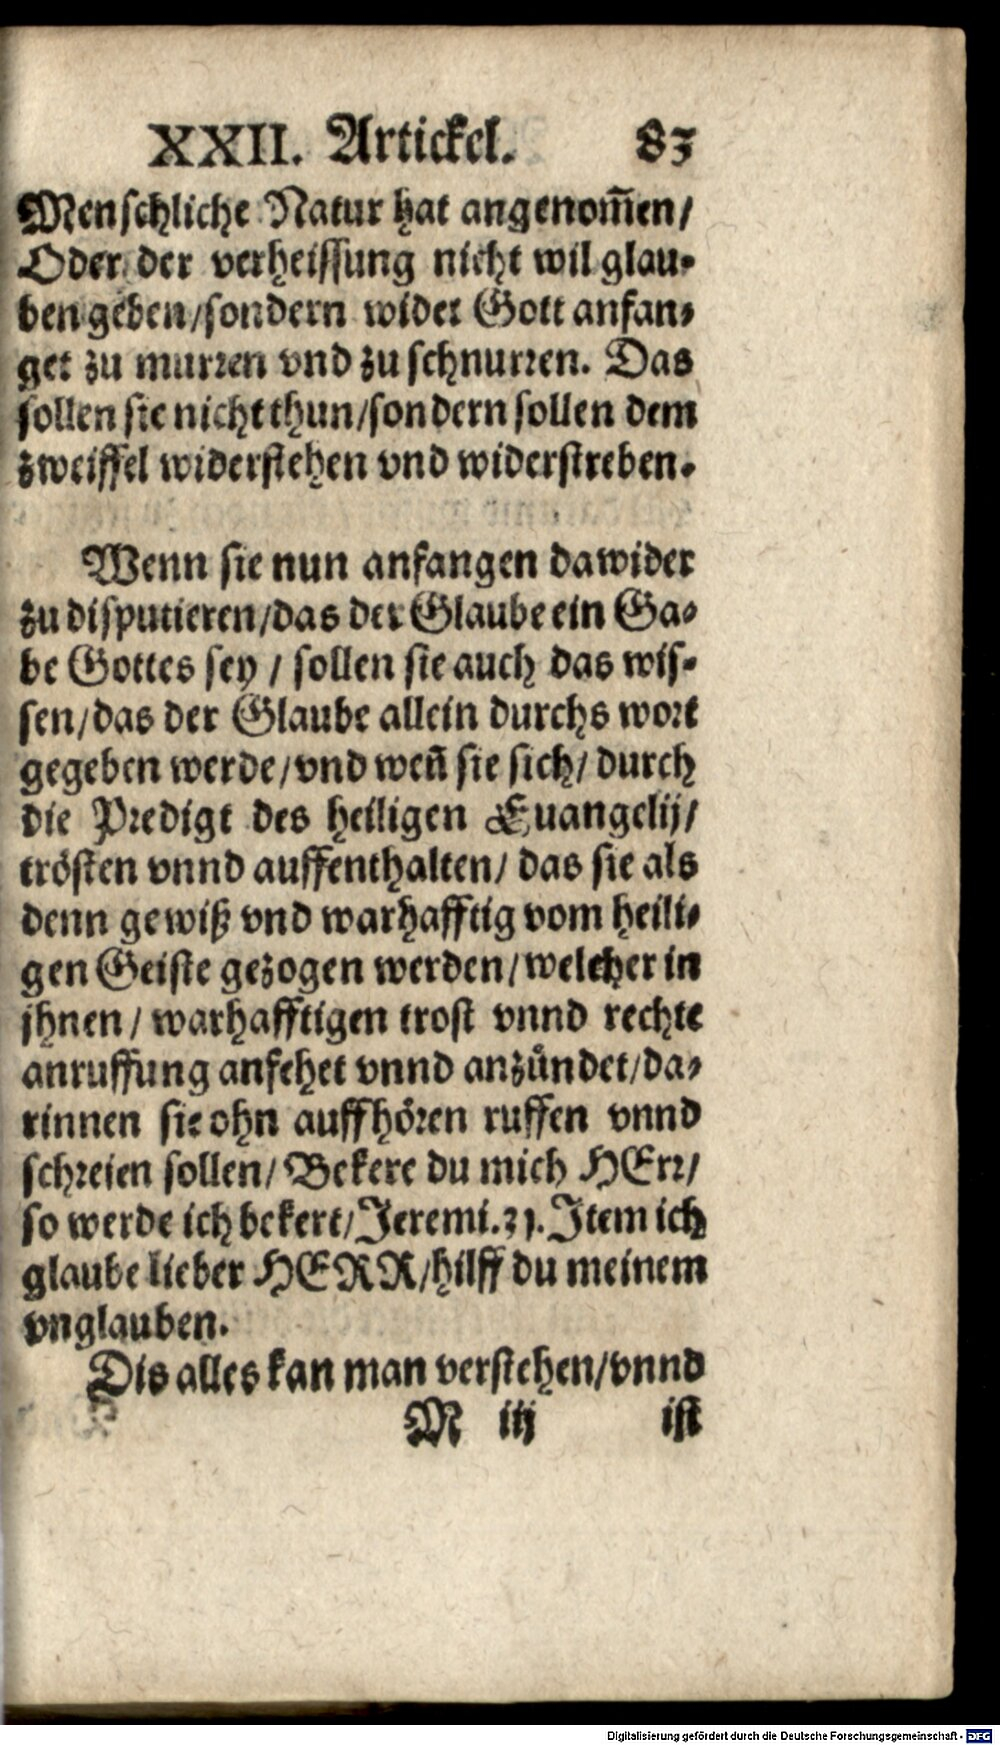 XXII. Artickel. 83
Menschliche Natur hat angenom̃en/
Oder der verheissung nicht wil glau-
ben geben/sondern wider Gott anfan-
get zu murren vnd zu schnurren. Das
sollen sie nicht thun/sondern sollen dem
zweiffel widerstehen vnd widerstreben.
Wenn sie nun anfangen dawider
zu disputieren/das der Glaube ein Ga-
be Gottes sey / sollen sie auch das wis-
sen/das der Glaube allein durchs wort
gegeben werde/vnd weñ sie sich/ durch
die Predigt des heiligen Euangelij/
trösten vnnd auffenthalten/ das sie als
denn gewiß vnd warhafftig vom heili-
gen Geiste gezogen werden/welcher in
jhnen/ warhafftigen trost vnnd rechte
anruffung anfehet vnnd anzůndet/da-
rinnen sie ohn auffhören ruffen vnnd
schreien sollen/ Bekere du mich HErr/
so werde ich bekert/Jeremi.31. Item ich
glaube lieber HERR/hilff du meinem
vnglauben.
Dis alles kan man verstehen/vnnd
M iij ist
Digitalisierung gefördert durch die Deutsche Forschungsgemeinschaft - DFG